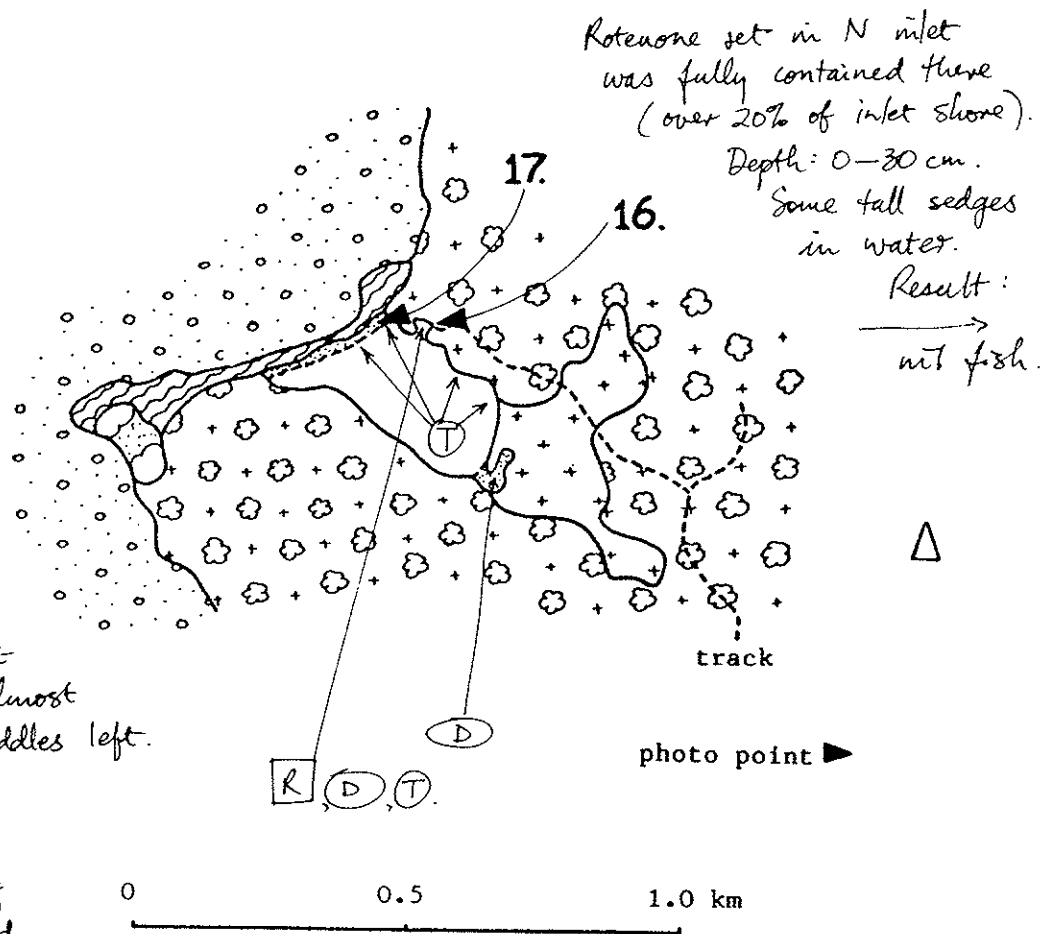 Rotenone set in N inlet
was fully contained there
(over 20% of inlet shore).
Depth: 0-30 cm.
Some tall sedges
in water.
Result:
nil fish.
17.
16.
T
track
lmost
ddles left.
D
photo point
R, D, T.
0 0.5 1.0 km